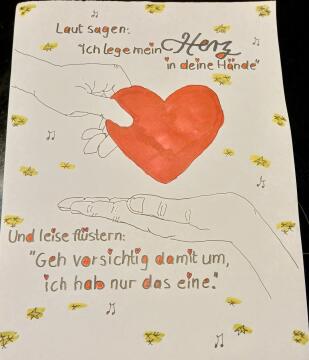 Laut sagen:
"Ich lege mein Herz
in deine Hände"
Und leise flüstern:
"Geh vorsichtig damit um,
ich hab nur das eine."